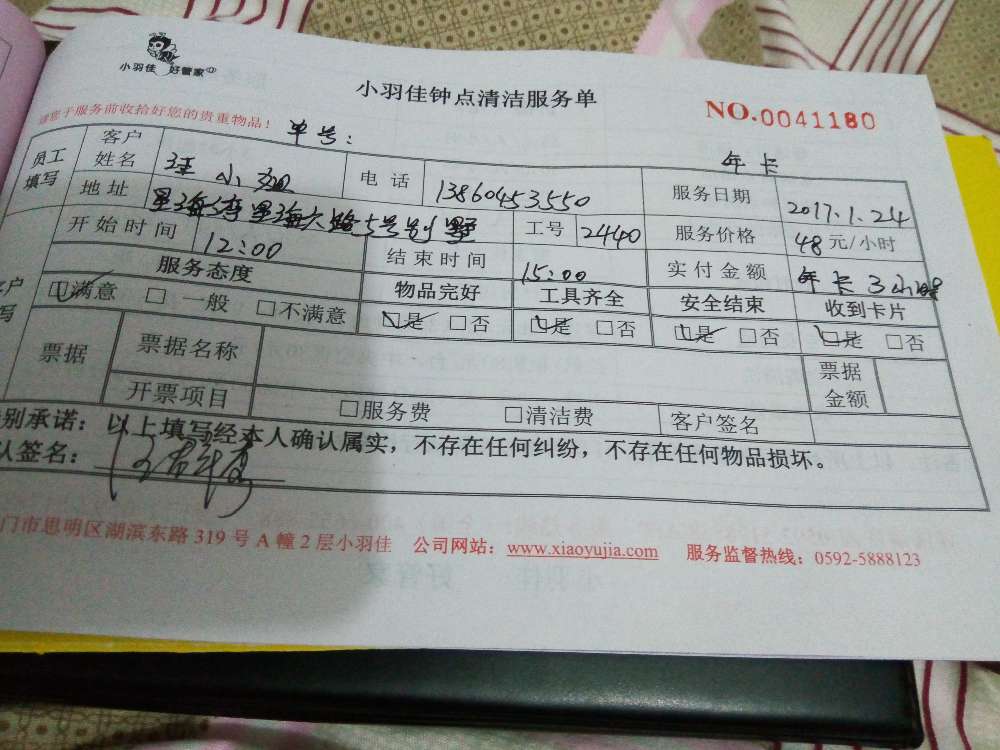 小羽佳 好管家
小羽佳钟点清洁服务单
NO.0041180
请您于服务前收拾好您的贵重物品！
单号：
年卡
员工填写 客户姓名 小姐 电话 13860453550 服务日期 2017.1.24
地址 星海湾星海大路5号别墅 工号 2440 服务价格 48元/小时
开始时间 12:00 结束时间 15:00 实付金额 年卡3小时
服务态度 物品完好 工具齐全 安全结束 收到卡片
满意 一般 不满意 是 否 是 否 是 否 是 否
票据 票据名称 票据金额
开票项目 服务费 清洁费 客户签名
别承诺：以上填写经本人确认属实，不存在任何纠纷，不存在任何物品损坏。
签名：
门市思明区湖滨东路319号A幢2层小羽佳 公司网站：www.xiaoyujia.com 服务监督热线：0592-5888123